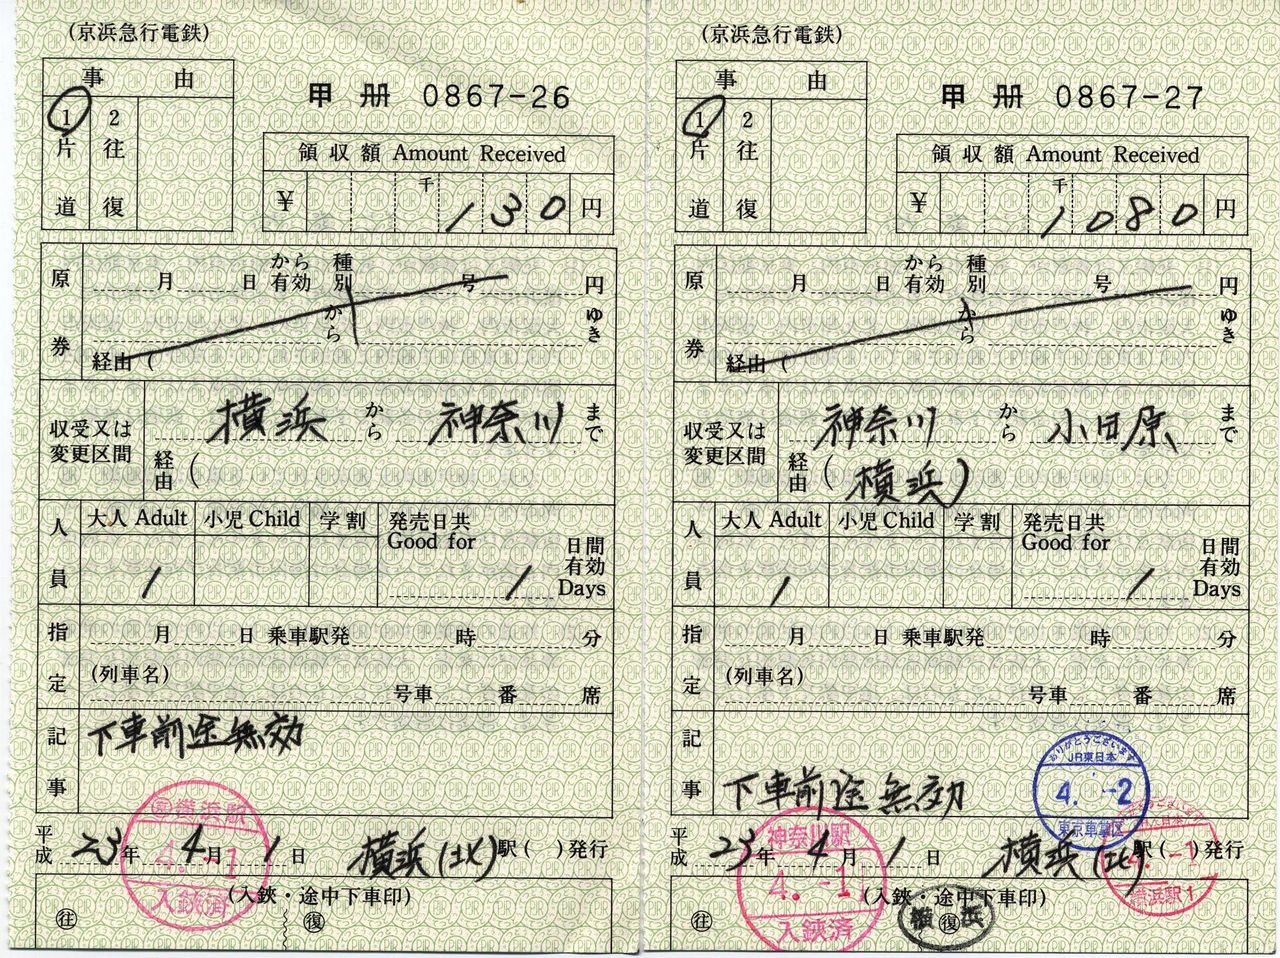 (京浜急行電鉄)
事 由
1 片道
2 往復
甲 册 0867-26
領収額 Amount Received
¥ 千 130 円
原券
月 日 から有効 種別 号 円
から ゆき
経由 (
収受又は変更区間
横浜 から 神奈川 まで
経由 (
人員
大人 Adult 小児 Child 学割 発売日共 Good for
1 1 日間有効 Days
指定
月 日 乗車駅発 時 分
(列車名)
号車 番 席
記事
下車前途無効
横浜駅
4.-1
入鋏済
平成 23年 4月 1日 横浜(北)駅( )発行
(入鋏・途中下車印)
往 復
(京浜急行電鉄)
事 由
1 片道
2 往復
甲 册 0867-27
領収額 Amount Received
¥ 千 1080 円
原券
月 日 から有効 種別 号 円
から ゆき
経由 (
収受又は変更区間
神奈川 から 小田原 まで
経由 (横浜)
人員
大人 Adult 小児 Child 学割 発売日共 Good for
1 1 日間有効 Days
指定
月 日 乗車駅発 時 分
(列車名)
号車 番 席
記事
下車前途無効
ありがとうございます
JR東日本
4.-2
東京車掌区
神奈川駅
4.-1
入鋏済
4.-1
横浜駅1
平成 23年 4月 1日 横浜(北)駅( )発行
(入鋏・途中下車印)
往 復
横浜